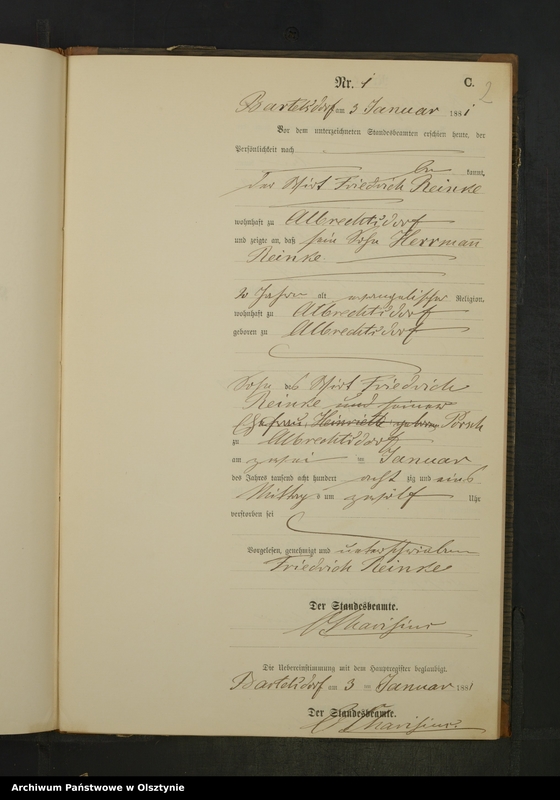 Nr. 1 C. 2
Bartelsdorf am 3 Januar 1881
Vor dem unterzeichneten Standesbeamten erschien heute, der
Persönlichkeit nach
kannt,
der Wirt Friedrich Reinke
wohnhaft zu Albrechtsdorf
und zeigte an, daß sein Sohn Herrmann
Reinke
2 Jahre alt evangelischer Religion,
wohnhaft zu Albrechtsdorf
geboren zu Albrechtsdorf
Sohn des Wirt Friedrich
Reinke und seiner
Ehefrau Henriette geboren
zu Albrechtsdorf
am zwei ten Januar
des Jahres tausend acht hundert acht zig und eins
Mittags um zwölf Uhr
verstorben sei
Vorgelesen, genehmigt und unterschrieben
Friedrich Reinke
Der Standesbeamte.
Die Uebereinstimmung mit dem Hauptregister beglaubigt.
Bartelsdorf am 3 ten Januar 1881
Der Standesbeamte.
Archiwum Państwowe w Olsztynie